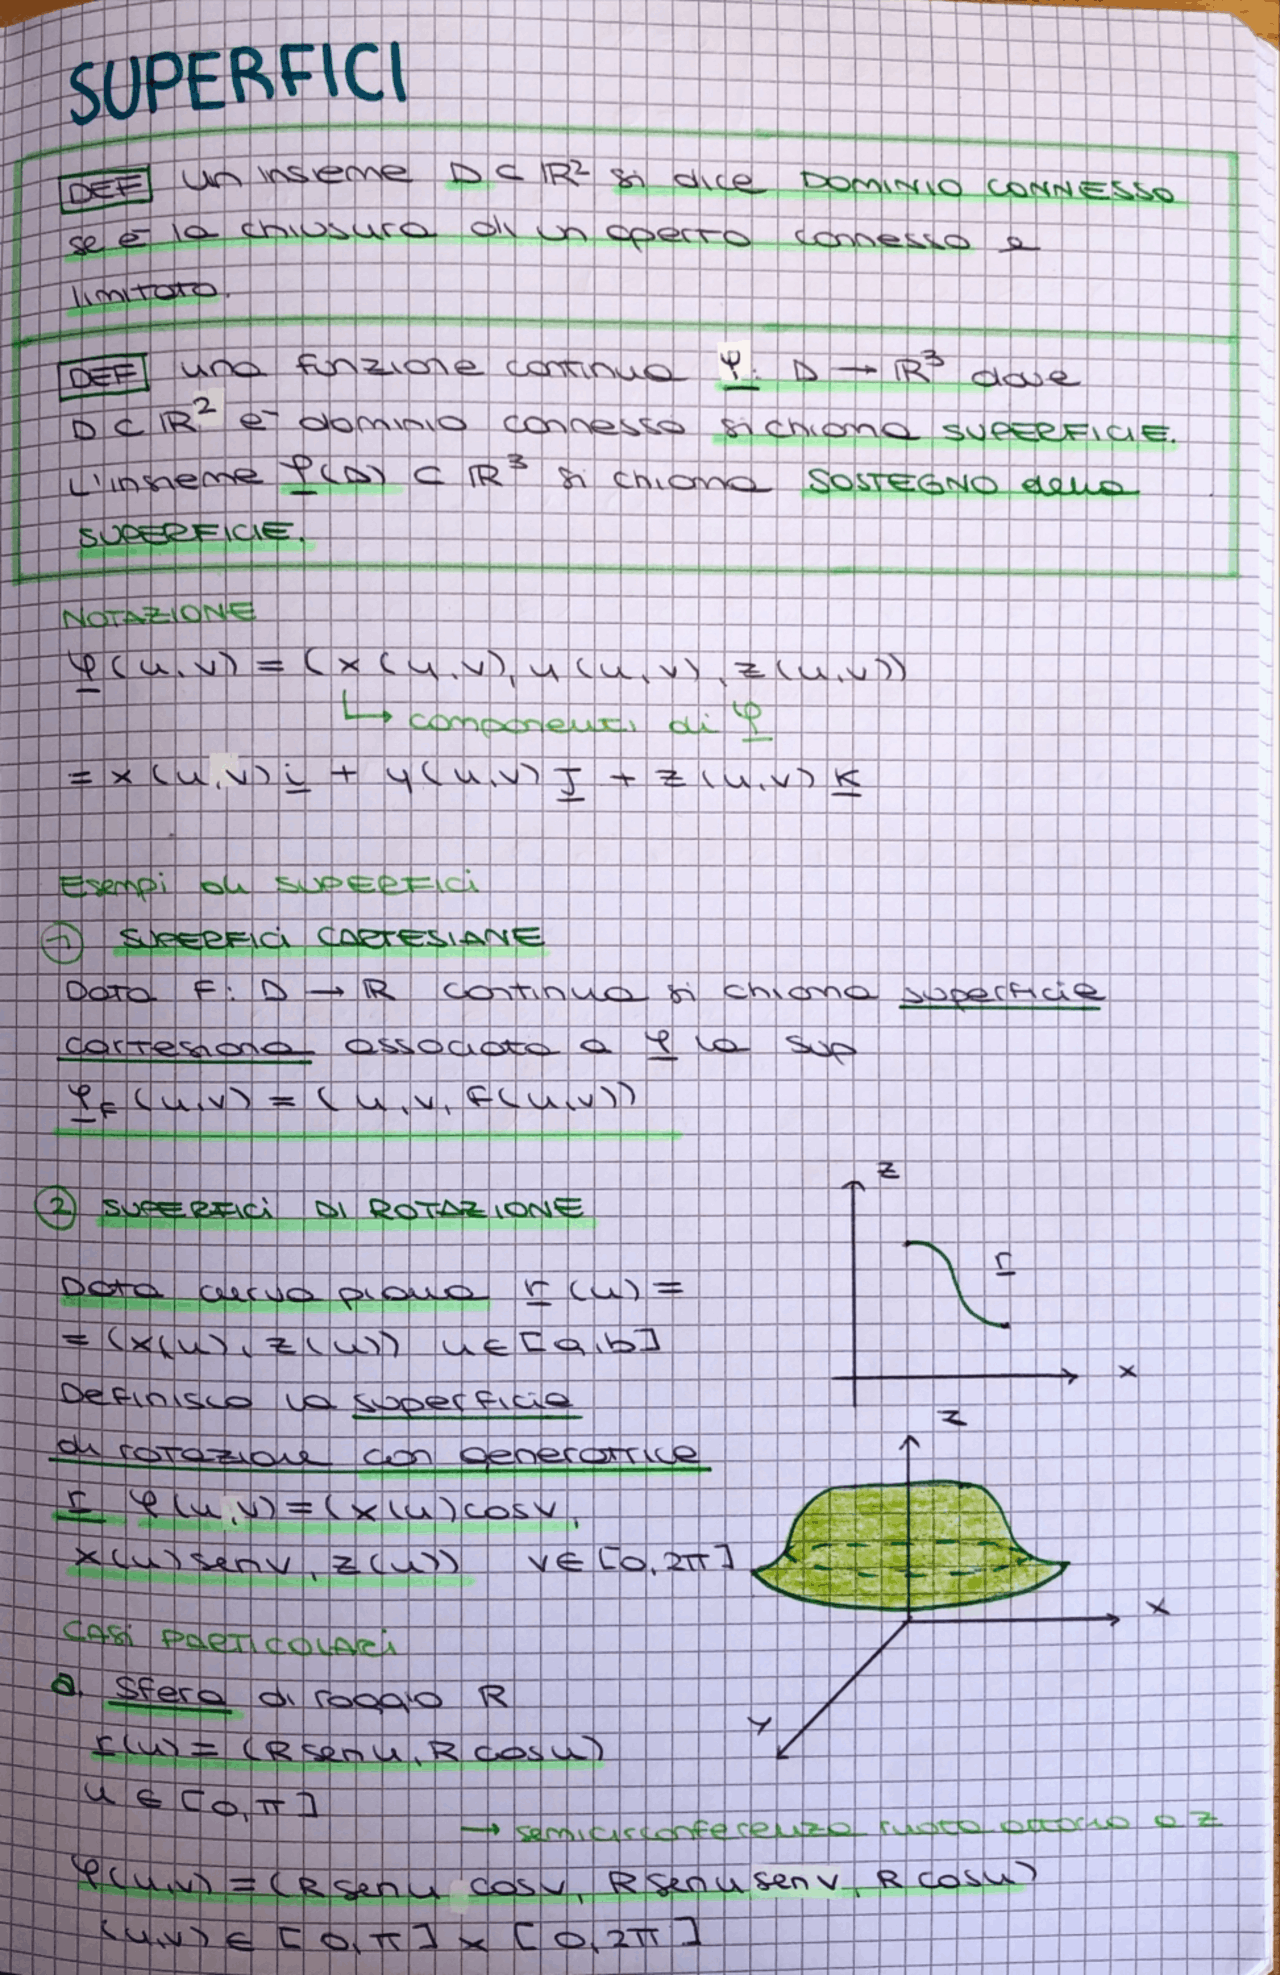 SUPERFICI
DEF un insieme D ⊂ ℝ² si dice DOMINIO CONNESSO
se è la chiusura di un aperto connesso e
limitato.
DEF una funzione continua φ: D → ℝ³ dove
D ⊂ ℝ² è dominio connesso si chiama SUPERFICIE.
L'insieme φ(D) ⊂ ℝ³ si chiama SOSTEGNO della
SUPERFICIE.
NOTAZIONE
φ(u,v) = (x(u,v), y(u,v), z(u,v))
↳ componenti di φ
= x(u,v) i + y(u,v) J + z(u,v) K
Esempi di SUPERFICI
① SUPERFICI CARTESIANE
Data F: D → ℝ continua si chiama superficie
cartesiana associata a φ la sup
φF(u,v) = (u,v, F(u,v))
② SUPERFICI DI ROTAZIONE
z
r
x
Data curva piana r(u) =
= (x(u), z(u)) u ∈ [a,b]
Definisco la superficie
di rotazione con generatrice
r φ(u,v) = (x(u)cosv,
x(u)senv, z(u)) v ∈ [0,2π]
z
x
y
CASI PARTICOLARI
a. Sfera di raggio R
r(u) = (Rsenu, Rcosu)
u ∈ [0,π]
→ semicirconferenza ruota attorno a z
φ(u,v) = (Rsenu cosv, Rsenusenv, Rcosu)
(u,v) ∈ [0,π] × [0,2π]